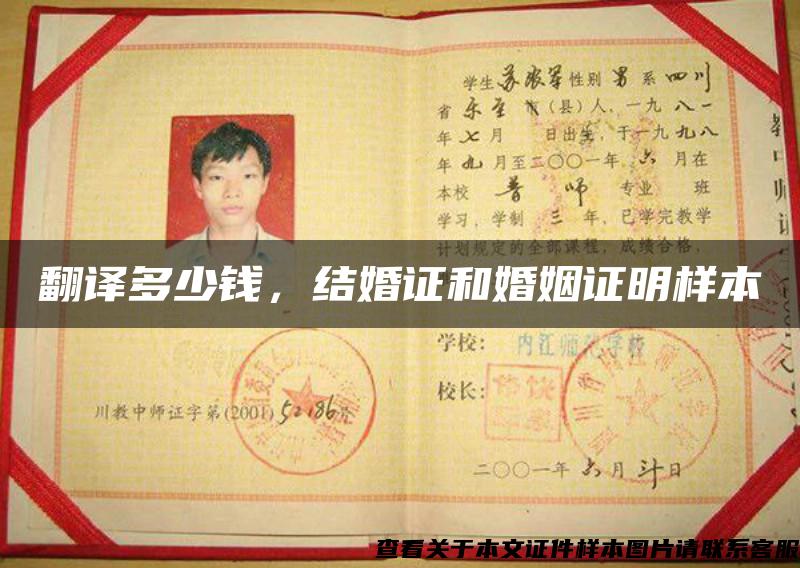 学生苏 性别 男 系 四川
省 乐至 市（县）人，一九八一
年 七 月 日出生，于一九九八
年 九 月至二〇〇一年 六 月在
本校 普师 专业 班
学习，学制 三 年，已学完教学
计划规定的全部课程，成绩合格，
翻译多少钱，结婚证和婚姻证明样本
学校： 内江师范学校
校长：
川教中师证字第(2001)52186号
二〇〇一年 六 月 日
查看关于本文证件样本图片请联系客服